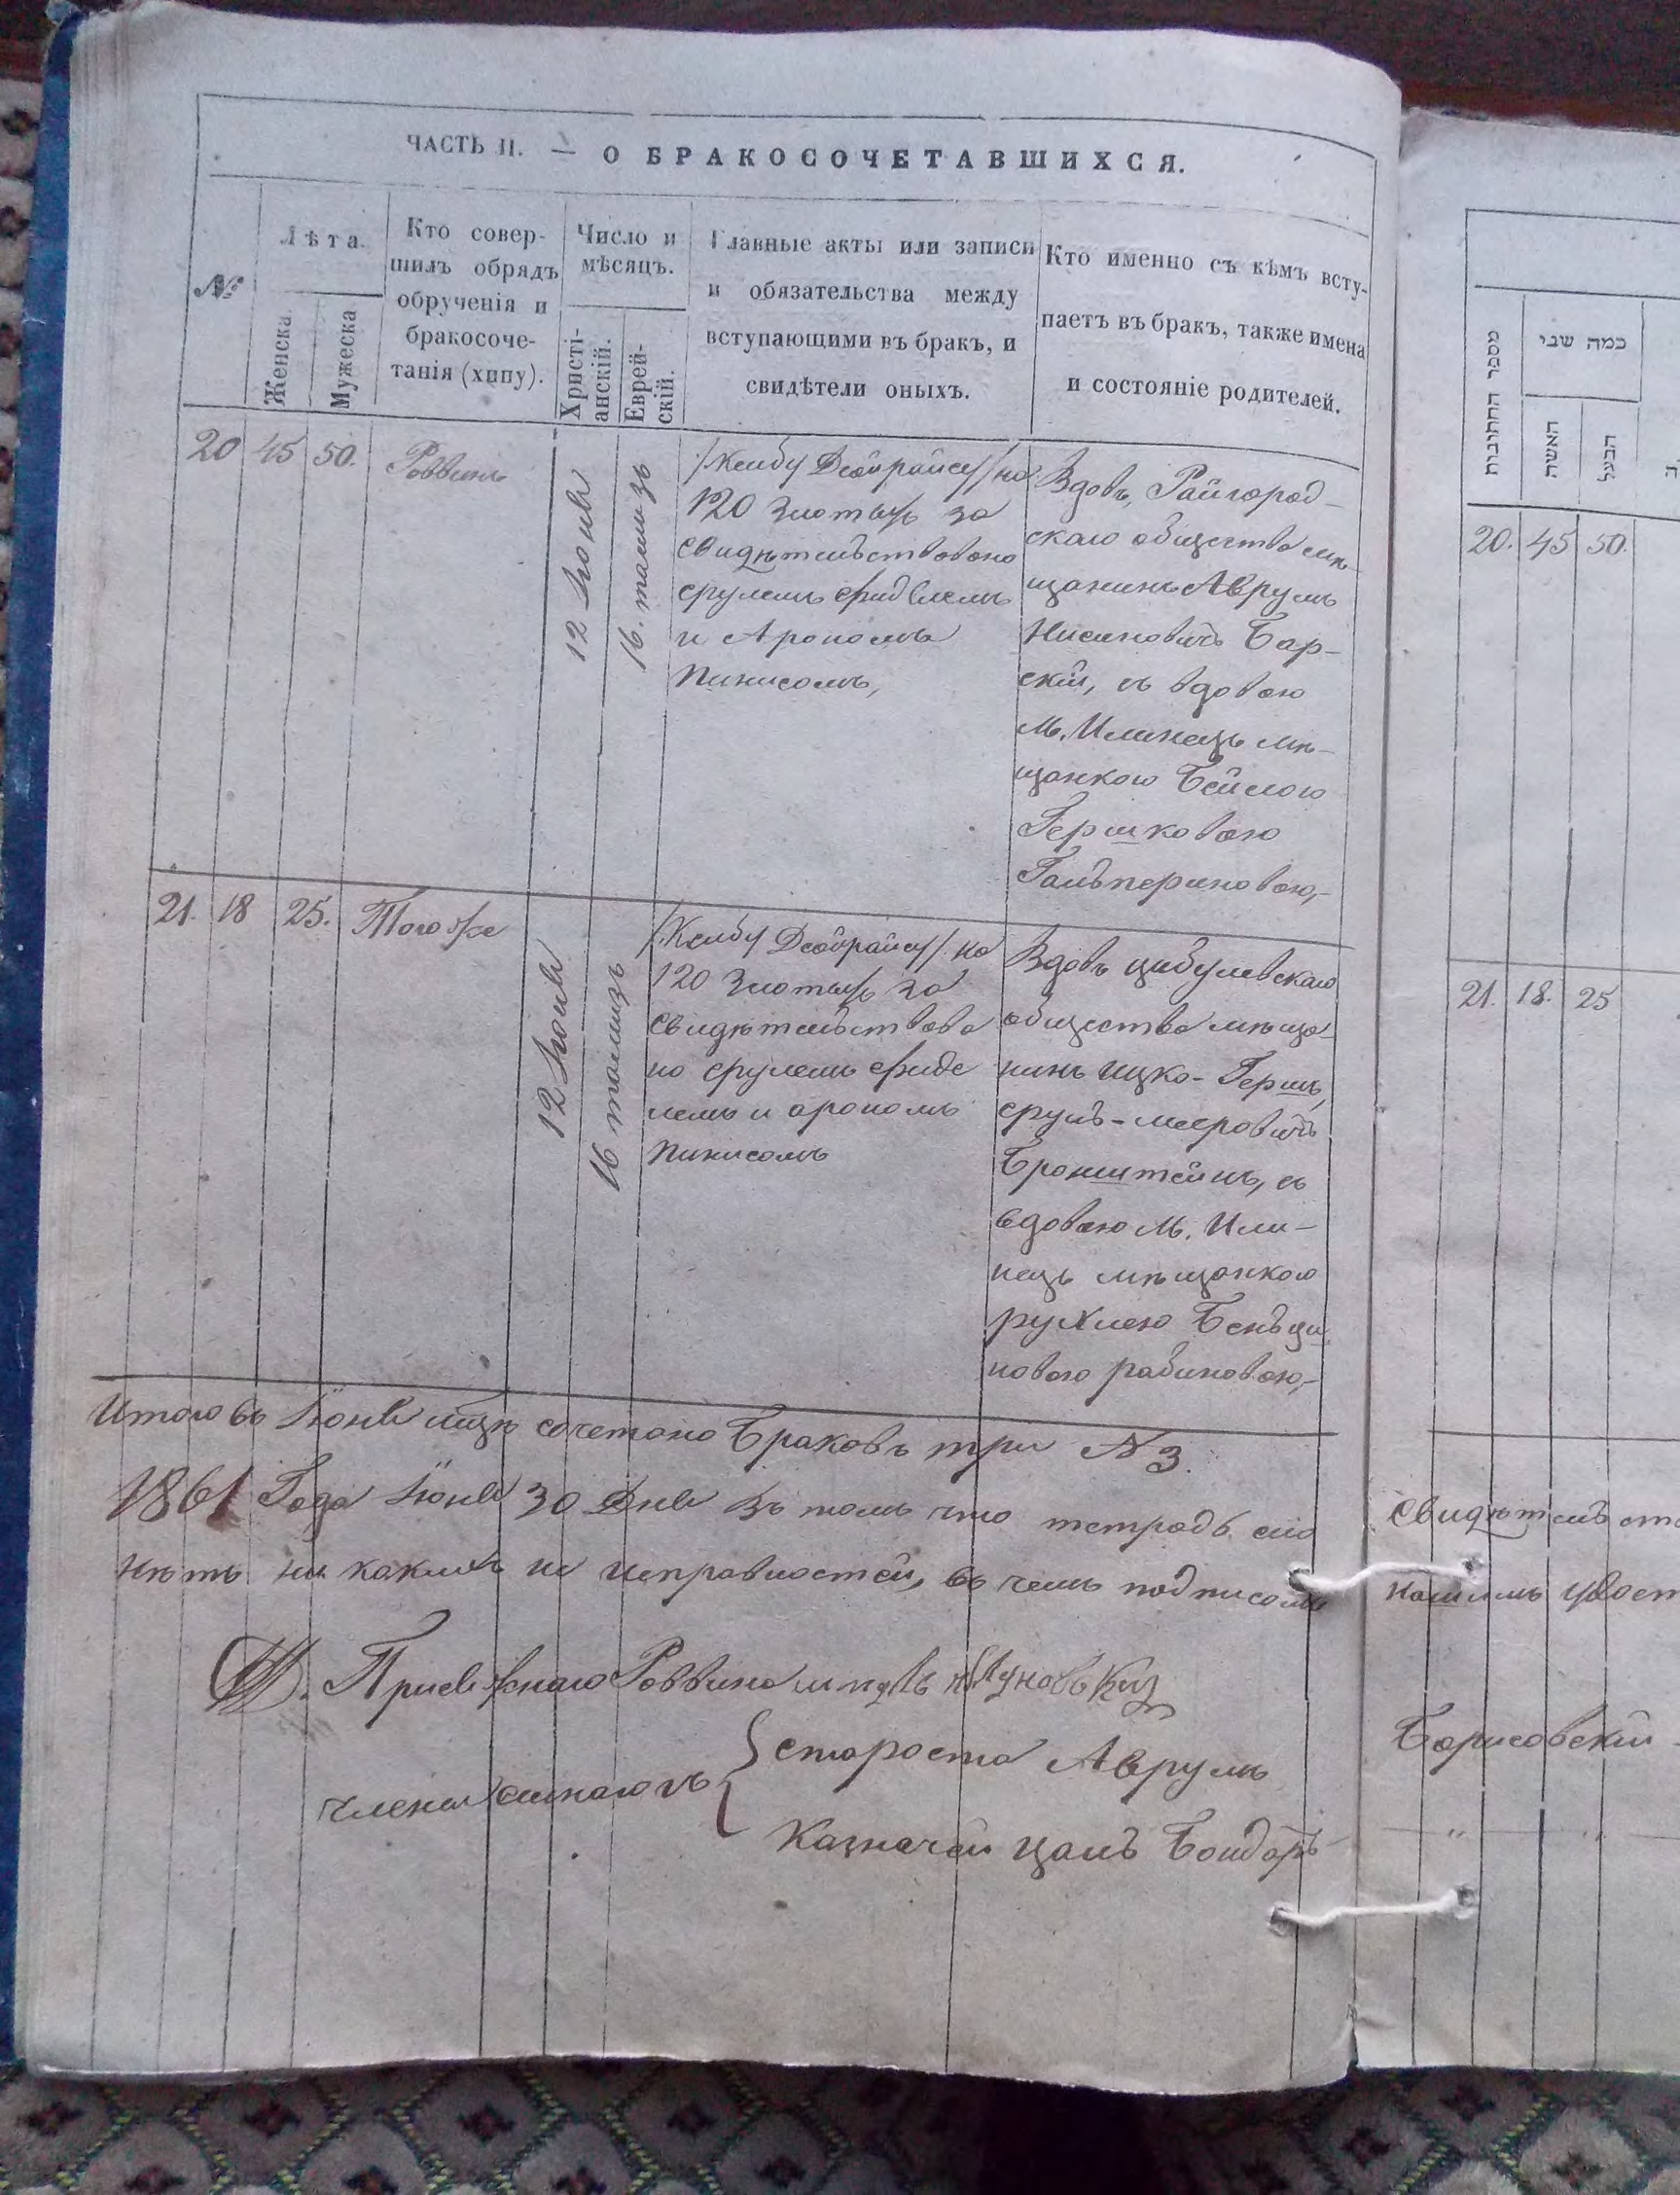 ЧАСТЬ II. — О БРАКОСОЧЕТАВШИХСЯ.
№
Лѣта.
Женска.
Мужеска
Кто совер-
шилъ обрядъ
обрученія и
бракосоче-
танія (хипу).
Число и
мѣсяцъ.
Христі-
анскій.
Еврей-
скій.
Главные акты или записи
и обязательства между
вступающими въ бракъ, и
свидѣтели оныхъ.
Кто именно съ кѣмъ всту-
паетъ въ бракъ, также имена
и состояніе родителей.
20 45 50. Раввинъ
12 Іюня
16.
на
120 злотыхъ за
свидѣтельствовано
срулемъ
и Арономъ
Пинисомъ,
Вдовъ, Райгород-
скаго общества мѣ-
щанинъ Аврумъ
Нисиновичъ Бар-
скій, съ вдовою
м. Илинецъ мѣ-
щанкою Бейлою
Гершковою
Гальпериновою,-
21. 18 25. Того же
12 Іюня
16 тамизъ
на
120 злотыхъ за
свидѣтельствова
но срулемъ фиде
лемъ и арономъ
Пинисомъ
Вдовъ цибулевскаго
общества мѣща-
нинъ ицко-Гершъ,
сруль-мееровичъ
Бронштейнъ, съ
вдовою м. Или-
нецъ мѣщанкою
рухлею Беньци
новою рабиновою,-
Итого въ Іюнѣ мцѣ сочетано Браковъ три № 3.
1861 Года Іюня 30 Дня въ томъ что тетрадь сію
нѣтъ ни какихъ не исправностей, въ чемъ подписомъ
Раввина
староста Аврумъ
Казначей цаль Бондарь
מספר החתונות
כמה שני
האשה
הבעל
20. 45 50.
21. 18. 25
Свидѣтель
нашимъ
Борисовскій